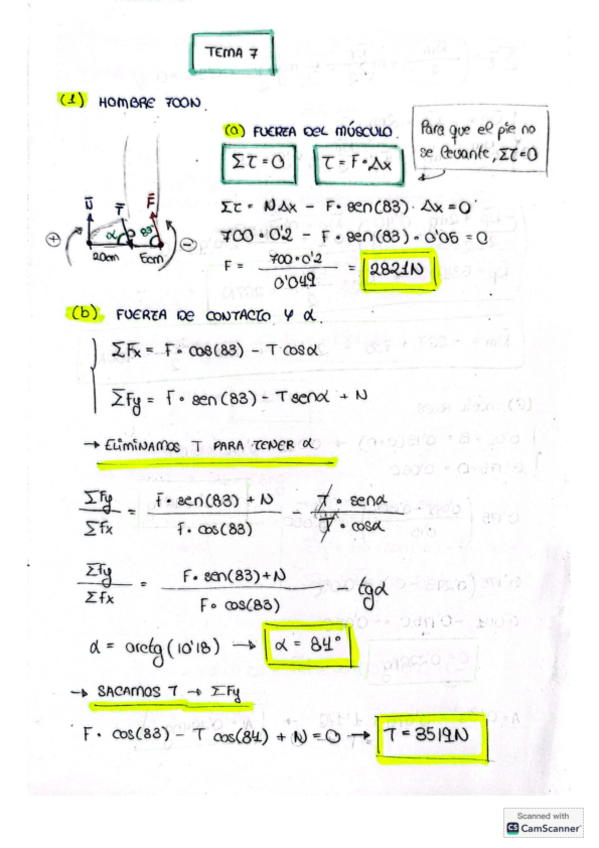 TEMA 7
(1) HOMBRE 700N.
(a) FUERZA DEL MÚSCULO.
Para que el pie no
se levante, Στ=0
Στ=0
τ=F·Δx
Ū T̄ F̄
α 83º
+ -
20cm 5cm
Στ = NΔx - F·sen(83)·Δx=0
700·0'2 - F·sen(83)·0'05=0
F = 700·0'2 / 0'049 = 2821N
(b) FUERZA DE CONTACTO Y α.
ΣFx = F·cos(83) - T cosα
ΣFy = F·sen(83) - T senα + N
→ ELIMINAMOS T PARA TENER α
ΣFy / ΣFx = F·sen(83)+N / F·cos(83) - T·senα / T·cosα
ΣFy / ΣFx = F·sen(83)+N / F·cos(83) - tgα
α = arctg(10'18) → α = 84º
→ SACAMOS T → ΣFy
F·cos(83) - T cos(84) + N = 0 → T = 3519N
Scanned with
CS CamScanner